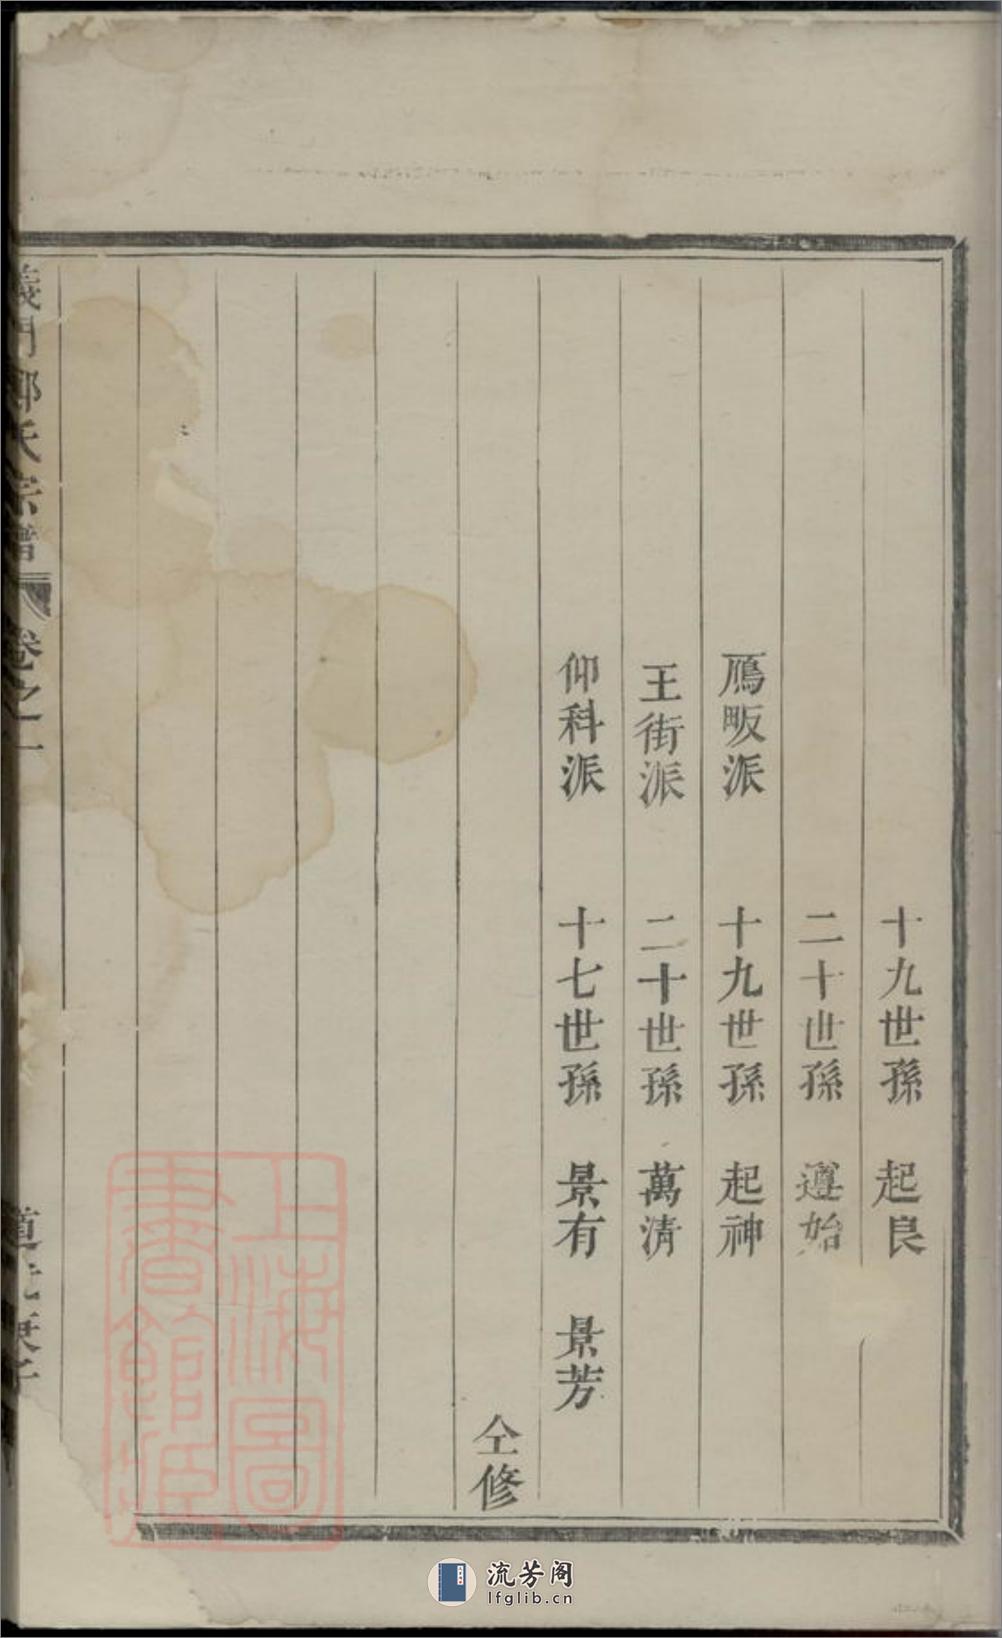 十九世孫 起良
二十世孫 遵始
鴈畈派 十九世孫 起神
王街派 二十世孫 萬淸
仰科派 十七世孫 景有 景芳
仝修
義門鄭氏宗譜 卷之一
上海圖
書館藏
流芳阁
lfglib.cn